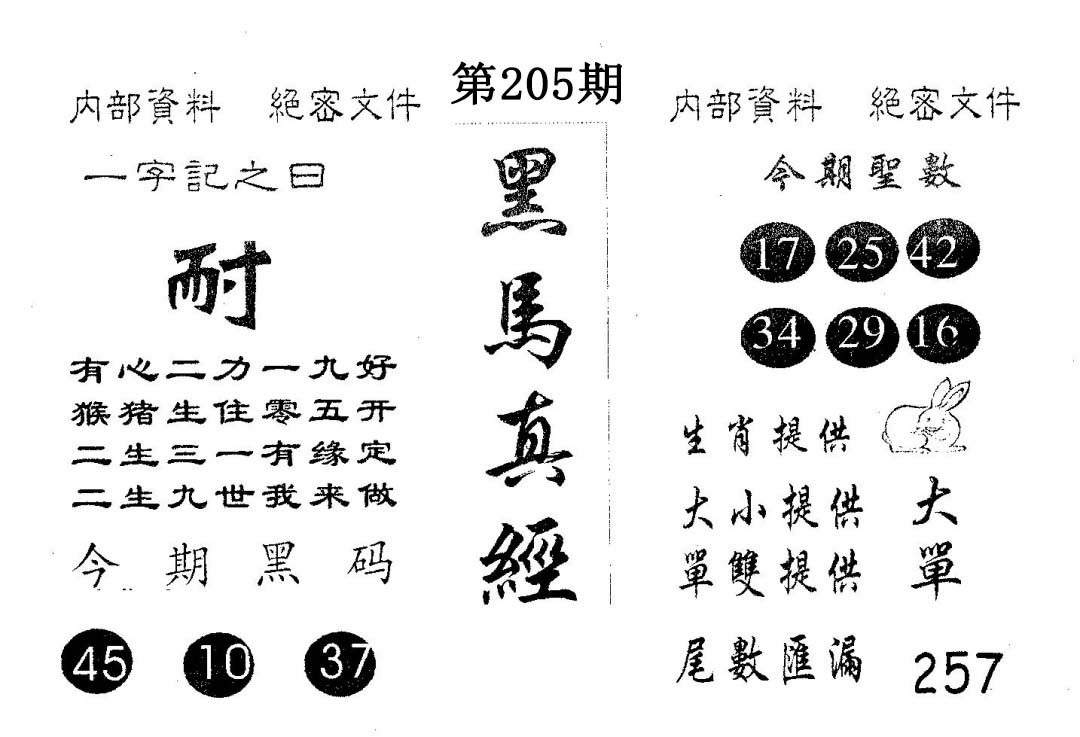 第205期
内部資料 絕密文件
一字記之曰
耐
有心二力一九好
猴猪生住零五开
二生三一有缘定
二生九世我来做
今期黑码
45 10 37
黑馬真經
内部資料 絕密文件
今期聖數
17 25 42
34 29 16
生肖提供
大小提供 大
單雙提供 單
尾數匯漏 257